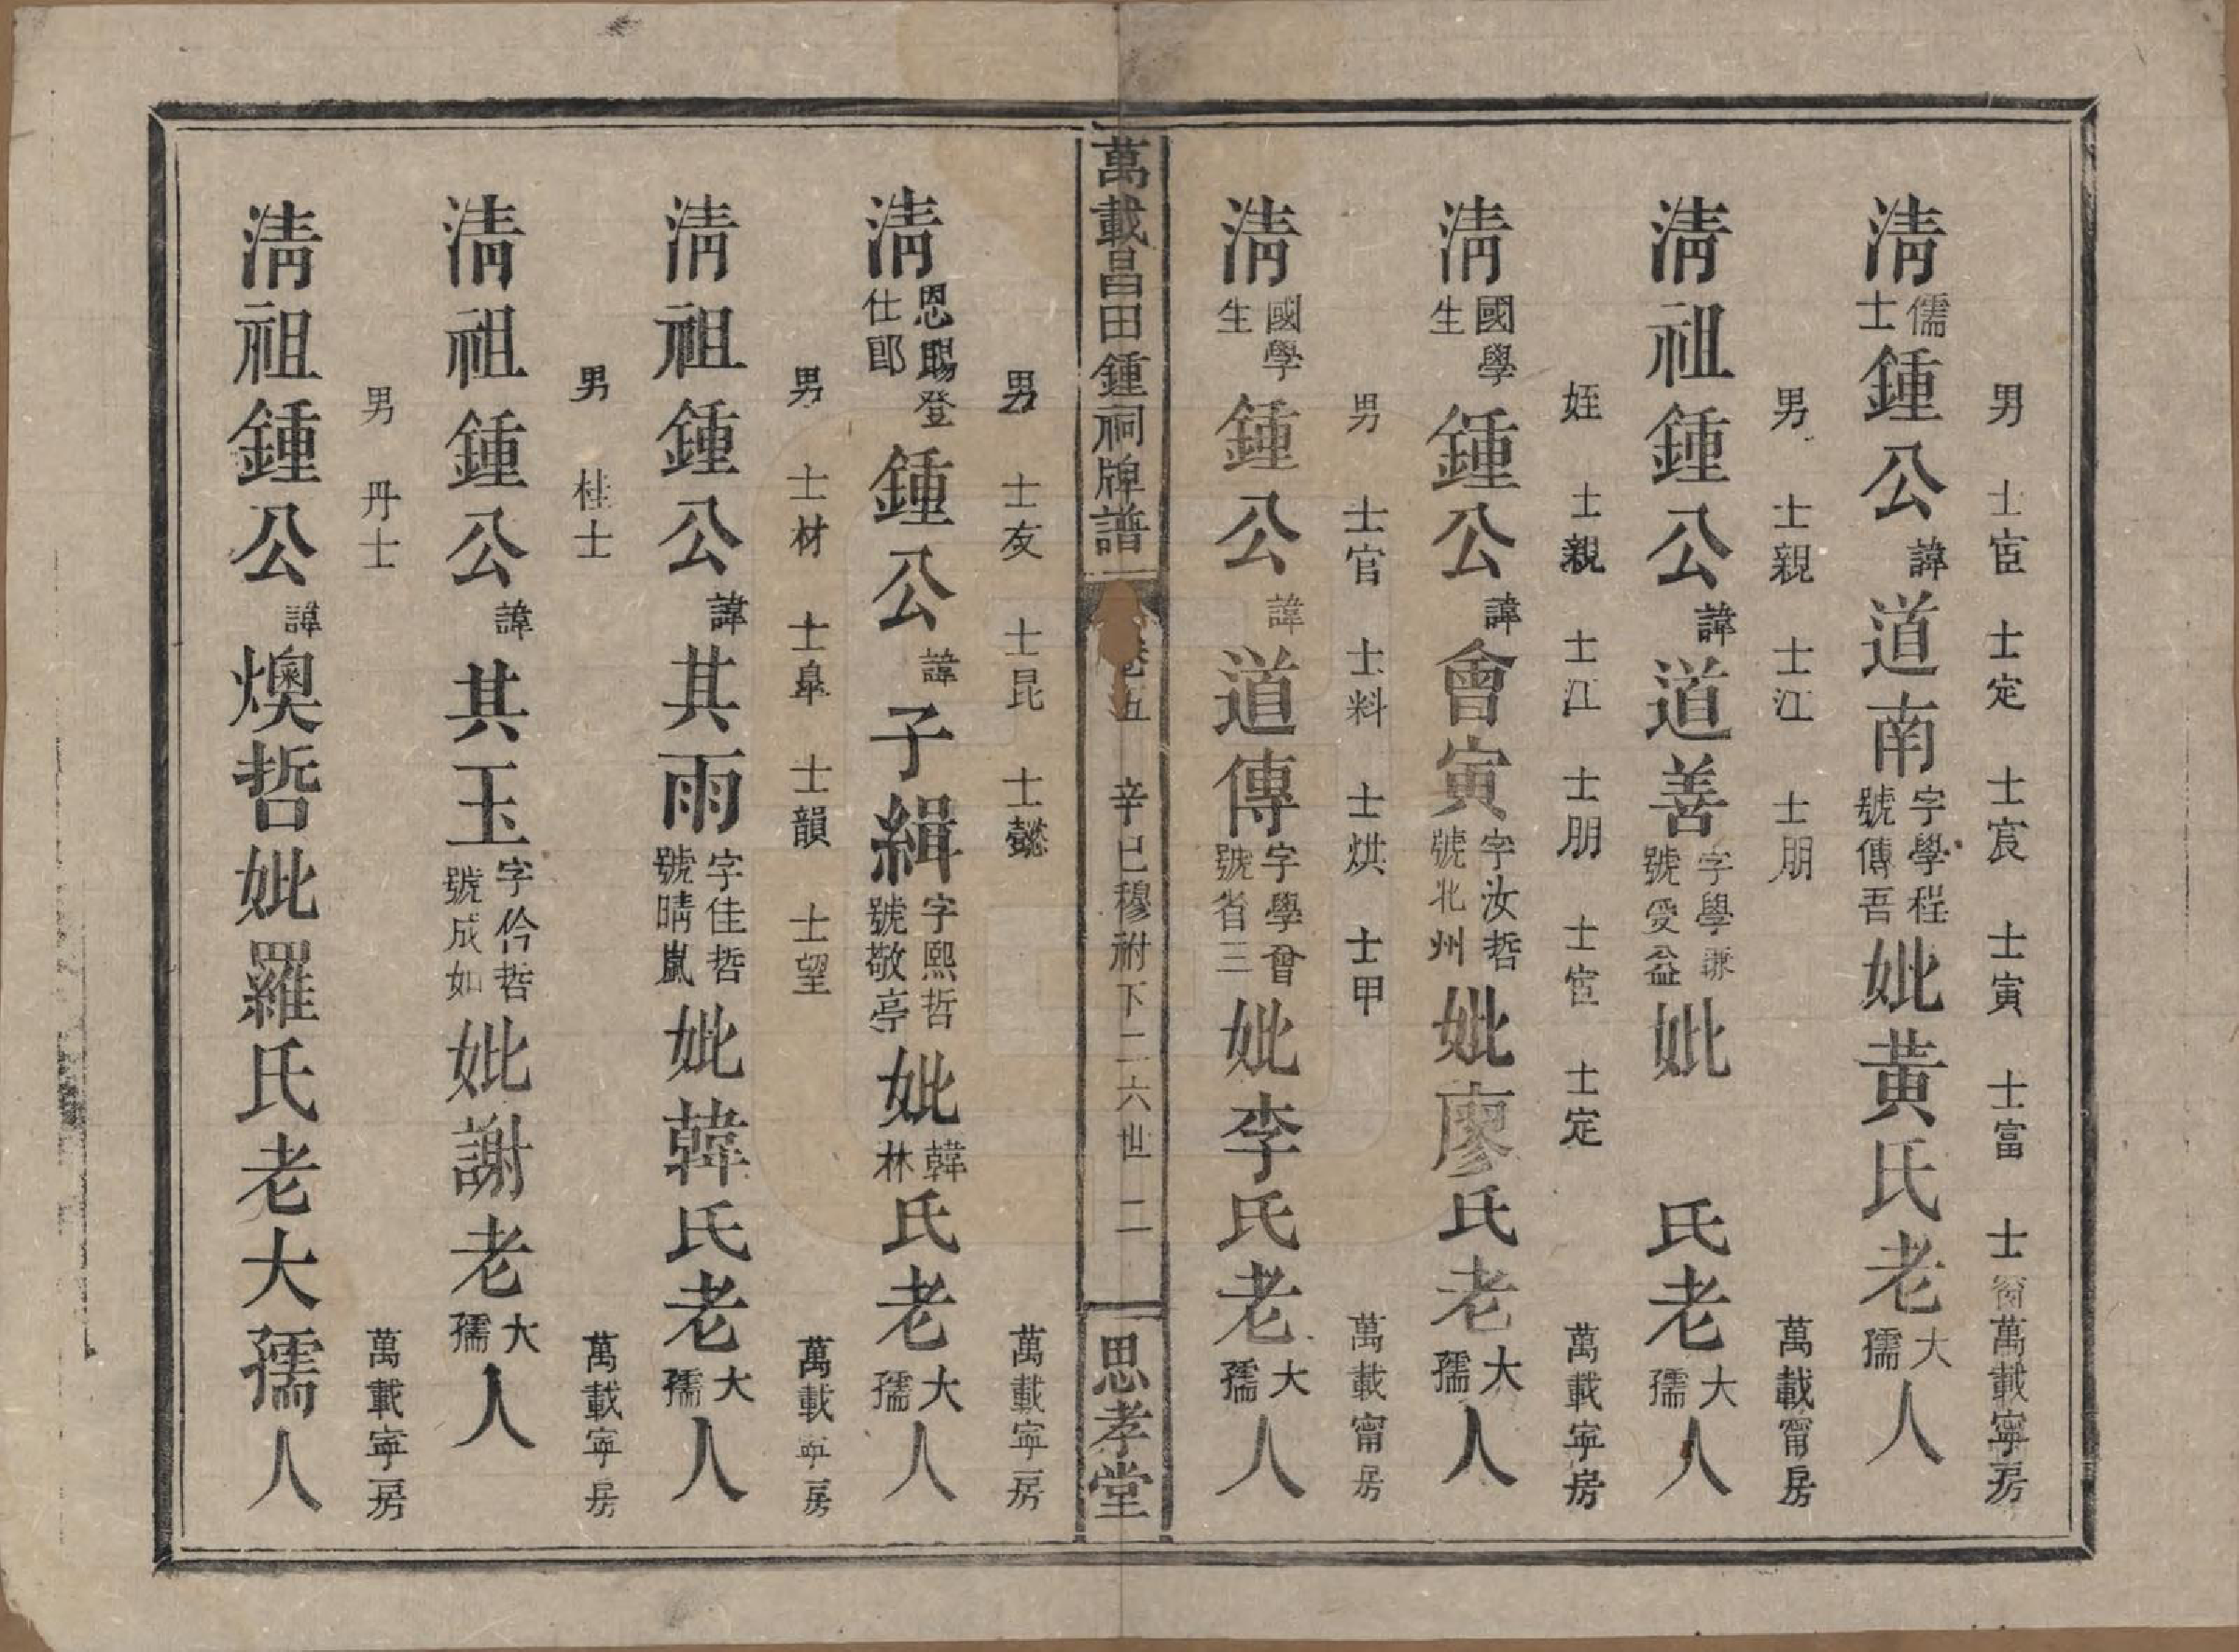 男　士宦　士定　士宸　士寅　士富　士　萬載寧房
清儒士鍾公諱道南字學程號傳吾妣黃氏老大孺人
男　士親　士江　士朋　萬載甯房
清祖鍾公諱道善字學謙號愛益妣　氏老大孺人
姪　士親　士江　士朋　士宦　士定　萬載寧房
清國學生鍾公諱會寅字汝哲號北州妣廖氏老大孺人
男　士官　士料　士烘　士甲　萬載甯房
清國學生鍾公諱道傳字學曾號省三妣李氏老大孺人
萬載昌田鍾祠牌譜　卷五　辛巳穆祔下二六世　二　思孝堂
男　士友　士昆　士懿　萬載寧房
清恩賜登仕郎鍾公諱子緝字熙哲號敬亭妣韓林氏老大孺人
男　士材　士臯　士韻　士望　萬載寧房
清祖鍾公諱其雨字佳哲號晴嵐妣韓氏老大孺人
男　桂士　萬載寧房
清祖鍾公諱其玉字伶哲號成如妣謝老大孺人
男　丹士　萬載寧房
清祖鍾公諱燠哲妣羅氏老大孺人